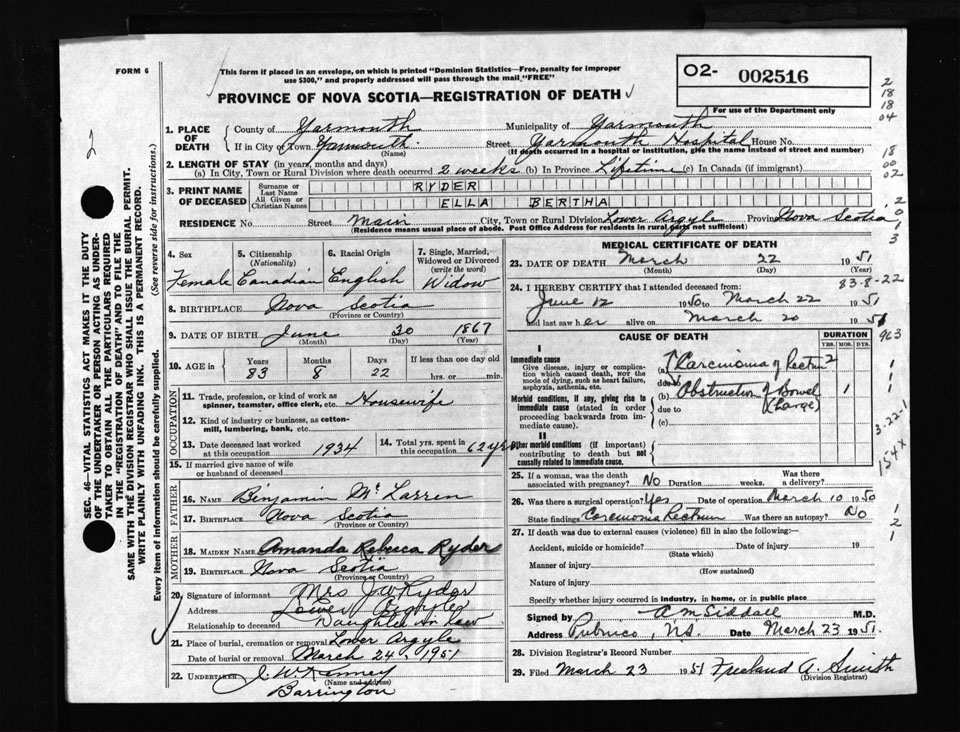 FORM 6
This form if placed in an envelope, on which is printed "Dominion Statistics—Free, penalty for improper
use $300," and properly addressed will pass through the mail "FREE"
PROVINCE OF NOVA SCOTIA—REGISTRATION OF DEATH
O2- 002516
For use of the Department only
2
18
18
04
18
00
02
2
SEC. 46—VITAL STATISTICS ACT MAKES IT THE DUTY
OF THE UNDERTAKER OR PERSON ACTING AS UNDER-
TAKER TO OBTAIN ALL THE PARTICULARS REQUIRED
IN THE "REGISTRATION OF DEATH" AND TO FILE THE
SAME WITH THE DIVISION REGISTRAR WHO SHALL ISSUE THE BURIAL PERMIT.
WRITE PLAINLY WITH UNFADING INK. THIS IS A PERMANENT RECORD.
Every item of information should be carefully supplied. (See reverse side for instructions.)
1. PLACE OF DEATH
County of Yarmouth Municipality of Yarmouth
If in City or Town Yarmouth Street Yarmouth Hospital House No.
(Name) (If death occurred in a hospital or institution, give the name instead of street and number)
2. LENGTH OF STAY (in years, months and days)
(a) In City, Town or Rural Division where death occurred 2 weeks (b) In Province Lifetime (c) In Canada (if immigrant)
3. PRINT NAME OF DECEASED
Surname or Last Name RYDER
All Given or Christian Names ELLA BERTHA
RESIDENCE No. Street Main City, Town or Rural Division Lower Argyle Province Nova Scotia
(Residence means usual place of abode. Post Office Address for residents in rural parts not sufficient)
4. Sex Female
5. Citizenship (Nationality) Canadian
6. Racial Origin English
7. Single, Married, Widowed or Divorced (write the word) Widow
8. BIRTHPLACE Nova Scotia
(Province or Country)
9. DATE OF BIRTH June 30 1867
(Month) (Day) (Year)
10. AGE in Years 83 Months 8 Days 22 If less than one day old hrs. or min.
OCCUPATION
11. Trade, profession, or kind of work as spinner, teamster, office clerk, etc. Housewife
12. Kind of industry or business, as cotton-mill, lumbering, bank, etc.
13. Date deceased last worked at this occupation 1934
14. Total yrs. spent in this occupation 62 yrs
15. If married give name of wife or husband of deceased
FATHER
16. Name Binjamin Mc Larren
17. BIRTHPLACE Nova Scotia
(Province or Country)
MOTHER
18. MAIDEN NAME Amanda Rebecca Ryder
19. BIRTHPLACE Nova Scotia
(Province or Country)
20. Signature of informant Mrs J W Ryder
Address Lower Argyle
Relationship to deceased Daughter in law
21. Place of burial, cremation or removal Lower Argyle
Date of burial or removal March 24, 1951
22. UNDERTAKER J. W. Kenney
(Name and address)
Barrington
MEDICAL CERTIFICATE OF DEATH
23. DATE OF DEATH March 22 1951
(Month) (Day) (Year)
83-8-22
24. I HEREBY CERTIFY that I attended deceased from:
June 12 1950 to March 22 1951
and last saw her alive on March 20 1951
CAUSE OF DEATH
DURATION
YRS. MOS. DYS.
963
I
Immediate cause
Give disease, injury or complication which caused death, not the mode of dying, such as heart failure, asphyxia, asthenia, etc.
(a) Carcinoma of Rectum 2
due to
Morbid conditions, if any, giving rise to immediate cause (stated in order proceeding backwards from immediate cause).
(b) Obstruction of Bowel 1
(Large)
due to
(c)
3-22-1
154X
II
Other morbid conditions (if important) contributing to death but not causally related to immediate cause.
25. If a woman, was the death associated with pregnancy? No Duration weeks. Was there a delivery?
26. Was there a surgical operation? Yes Date of operation March 10 1950
State findings Carcinoma Rectum Was there an autopsy? No
1
2
1
27. If death was due to external causes (violence) fill in also the following:
Accident, suicide or homicide? Date of injury 19
(State which)
Manner of injury
(How sustained)
Nature of injury
Specify whether injury occurred in industry, in home, or in public place
Signed by A M Siddall M.D.
Address Pubnico, N.S. Date March 23 1951.
28. Division Registrar's Record Number
29. Filed March 23 1951 Freeland A. Smith
(Division Registrar)